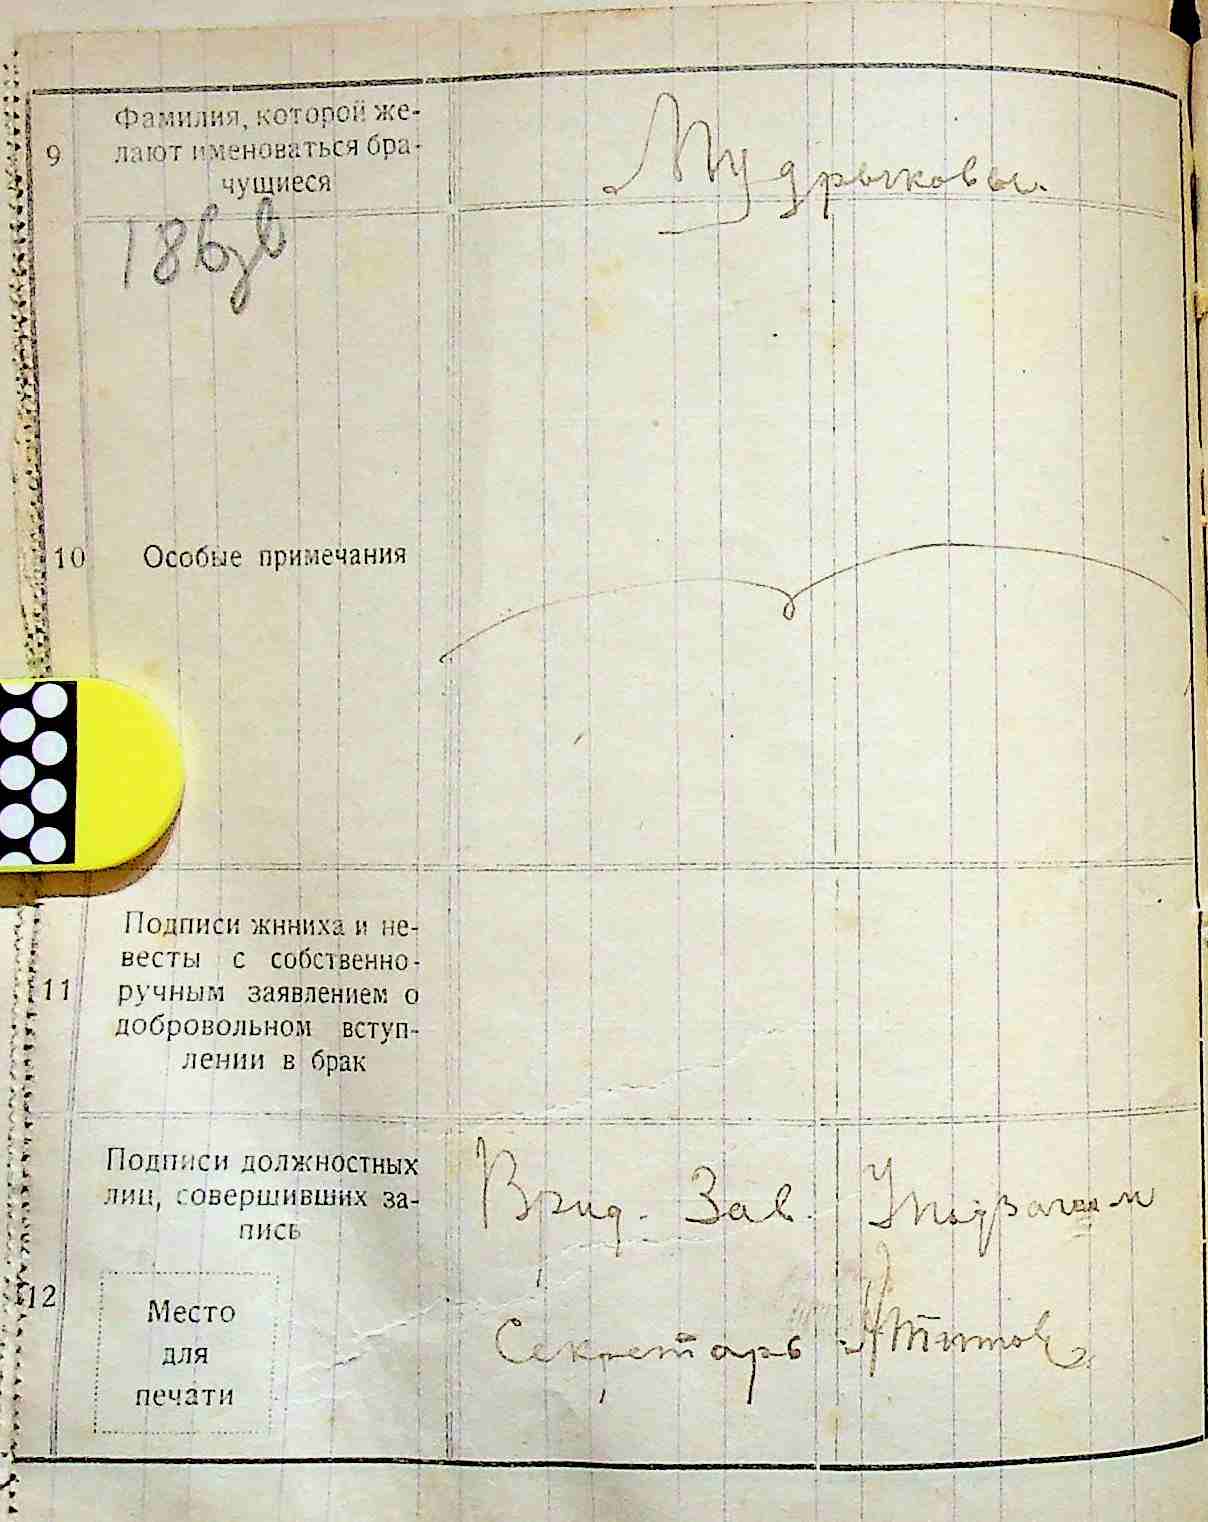 9
Фамилия, которой же-
лают именоваться бра-
чущиеся
Мудрыковы.
18
10
Особые примечания
11
Подписи жнниха и не-
весты с собственно-
ручным заявлением о
добровольном вступ-
лении в брак
12
Подписи должностных
лиц, совершивших за-
пись
Врид. Зав.
Секретарь
Место
для
печати